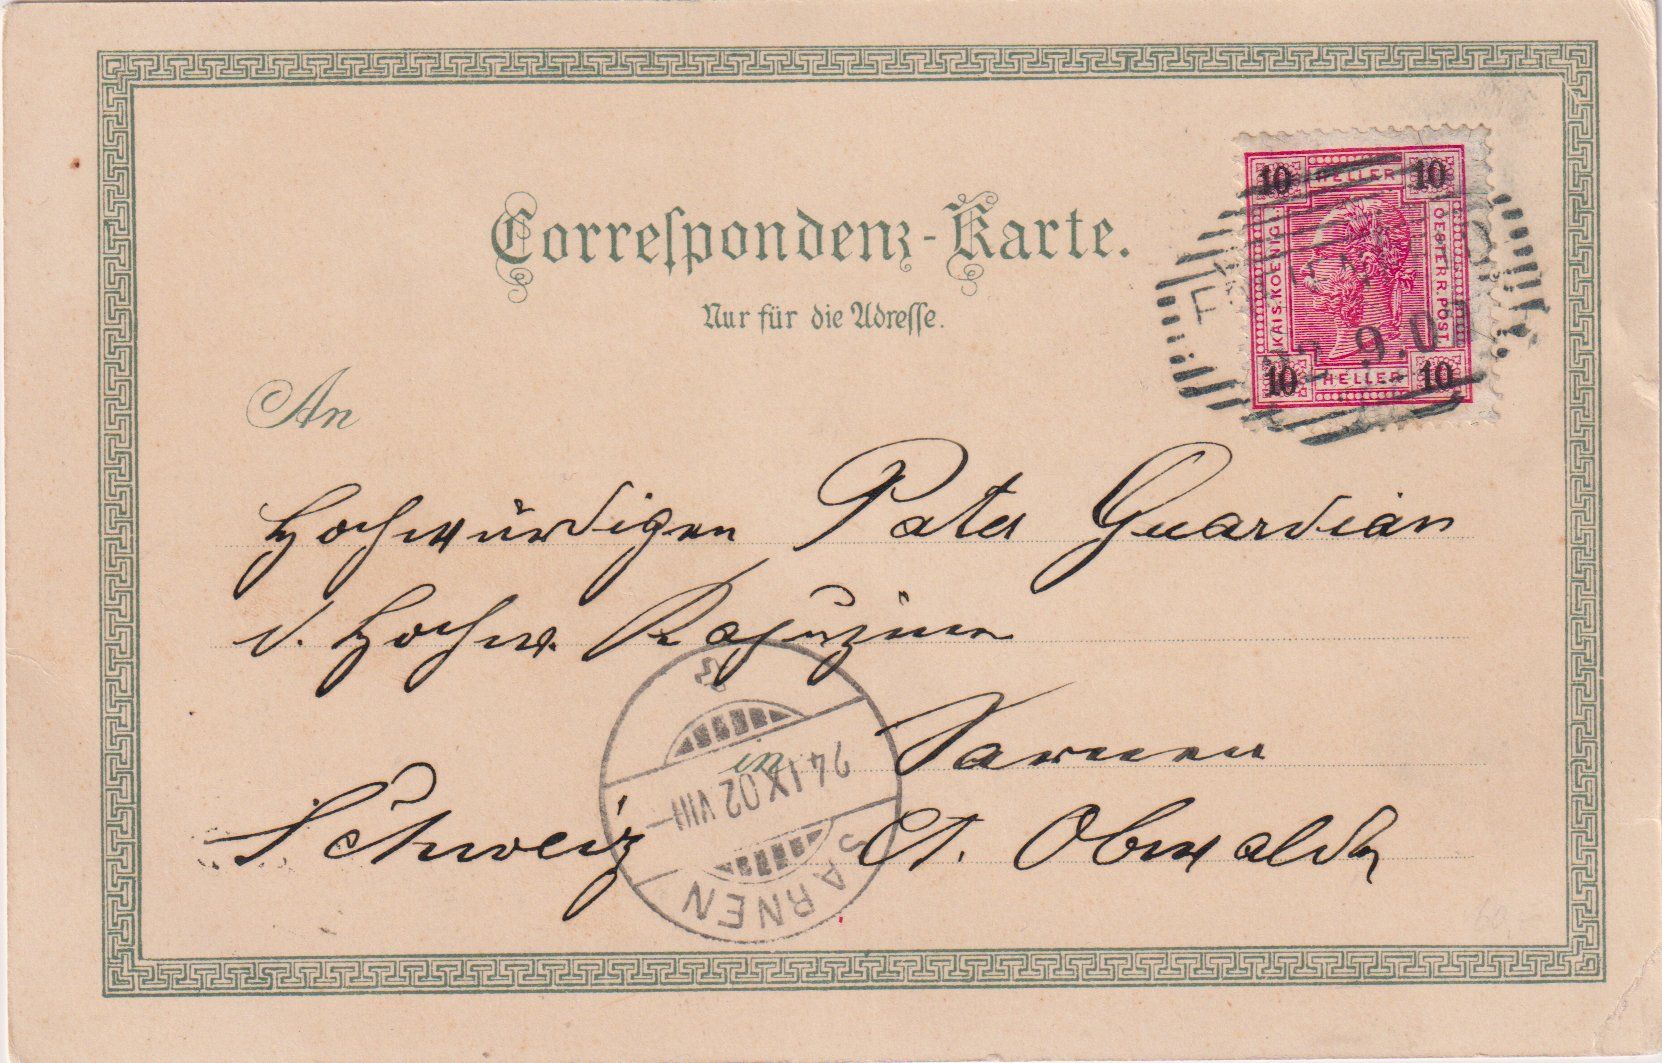 Correspondenz-Karte.
Nur für die Adresse.
10 HELLER 10
KAIS. KOENIGL. OESTERR. POST
10 HELLER 10
9.0
An
Hochwürdigen Pater Guardian
d. Hochw. Kapuziner
in Sarnen
Schweiz Ct. Obwalden
24 IX 02 VIII
SARNEN